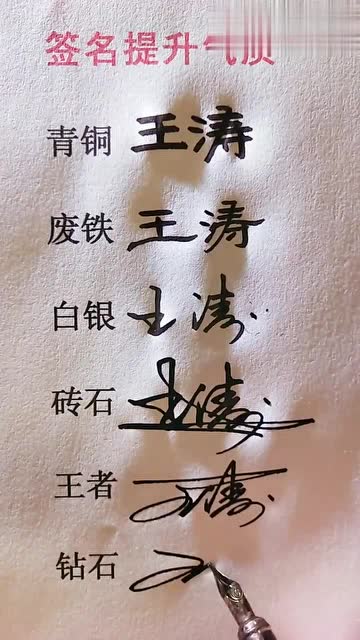 签名提升气质
青铜 王涛
废铁 王涛
白银 王涛
砖石 王涛
王者 王涛
钻石